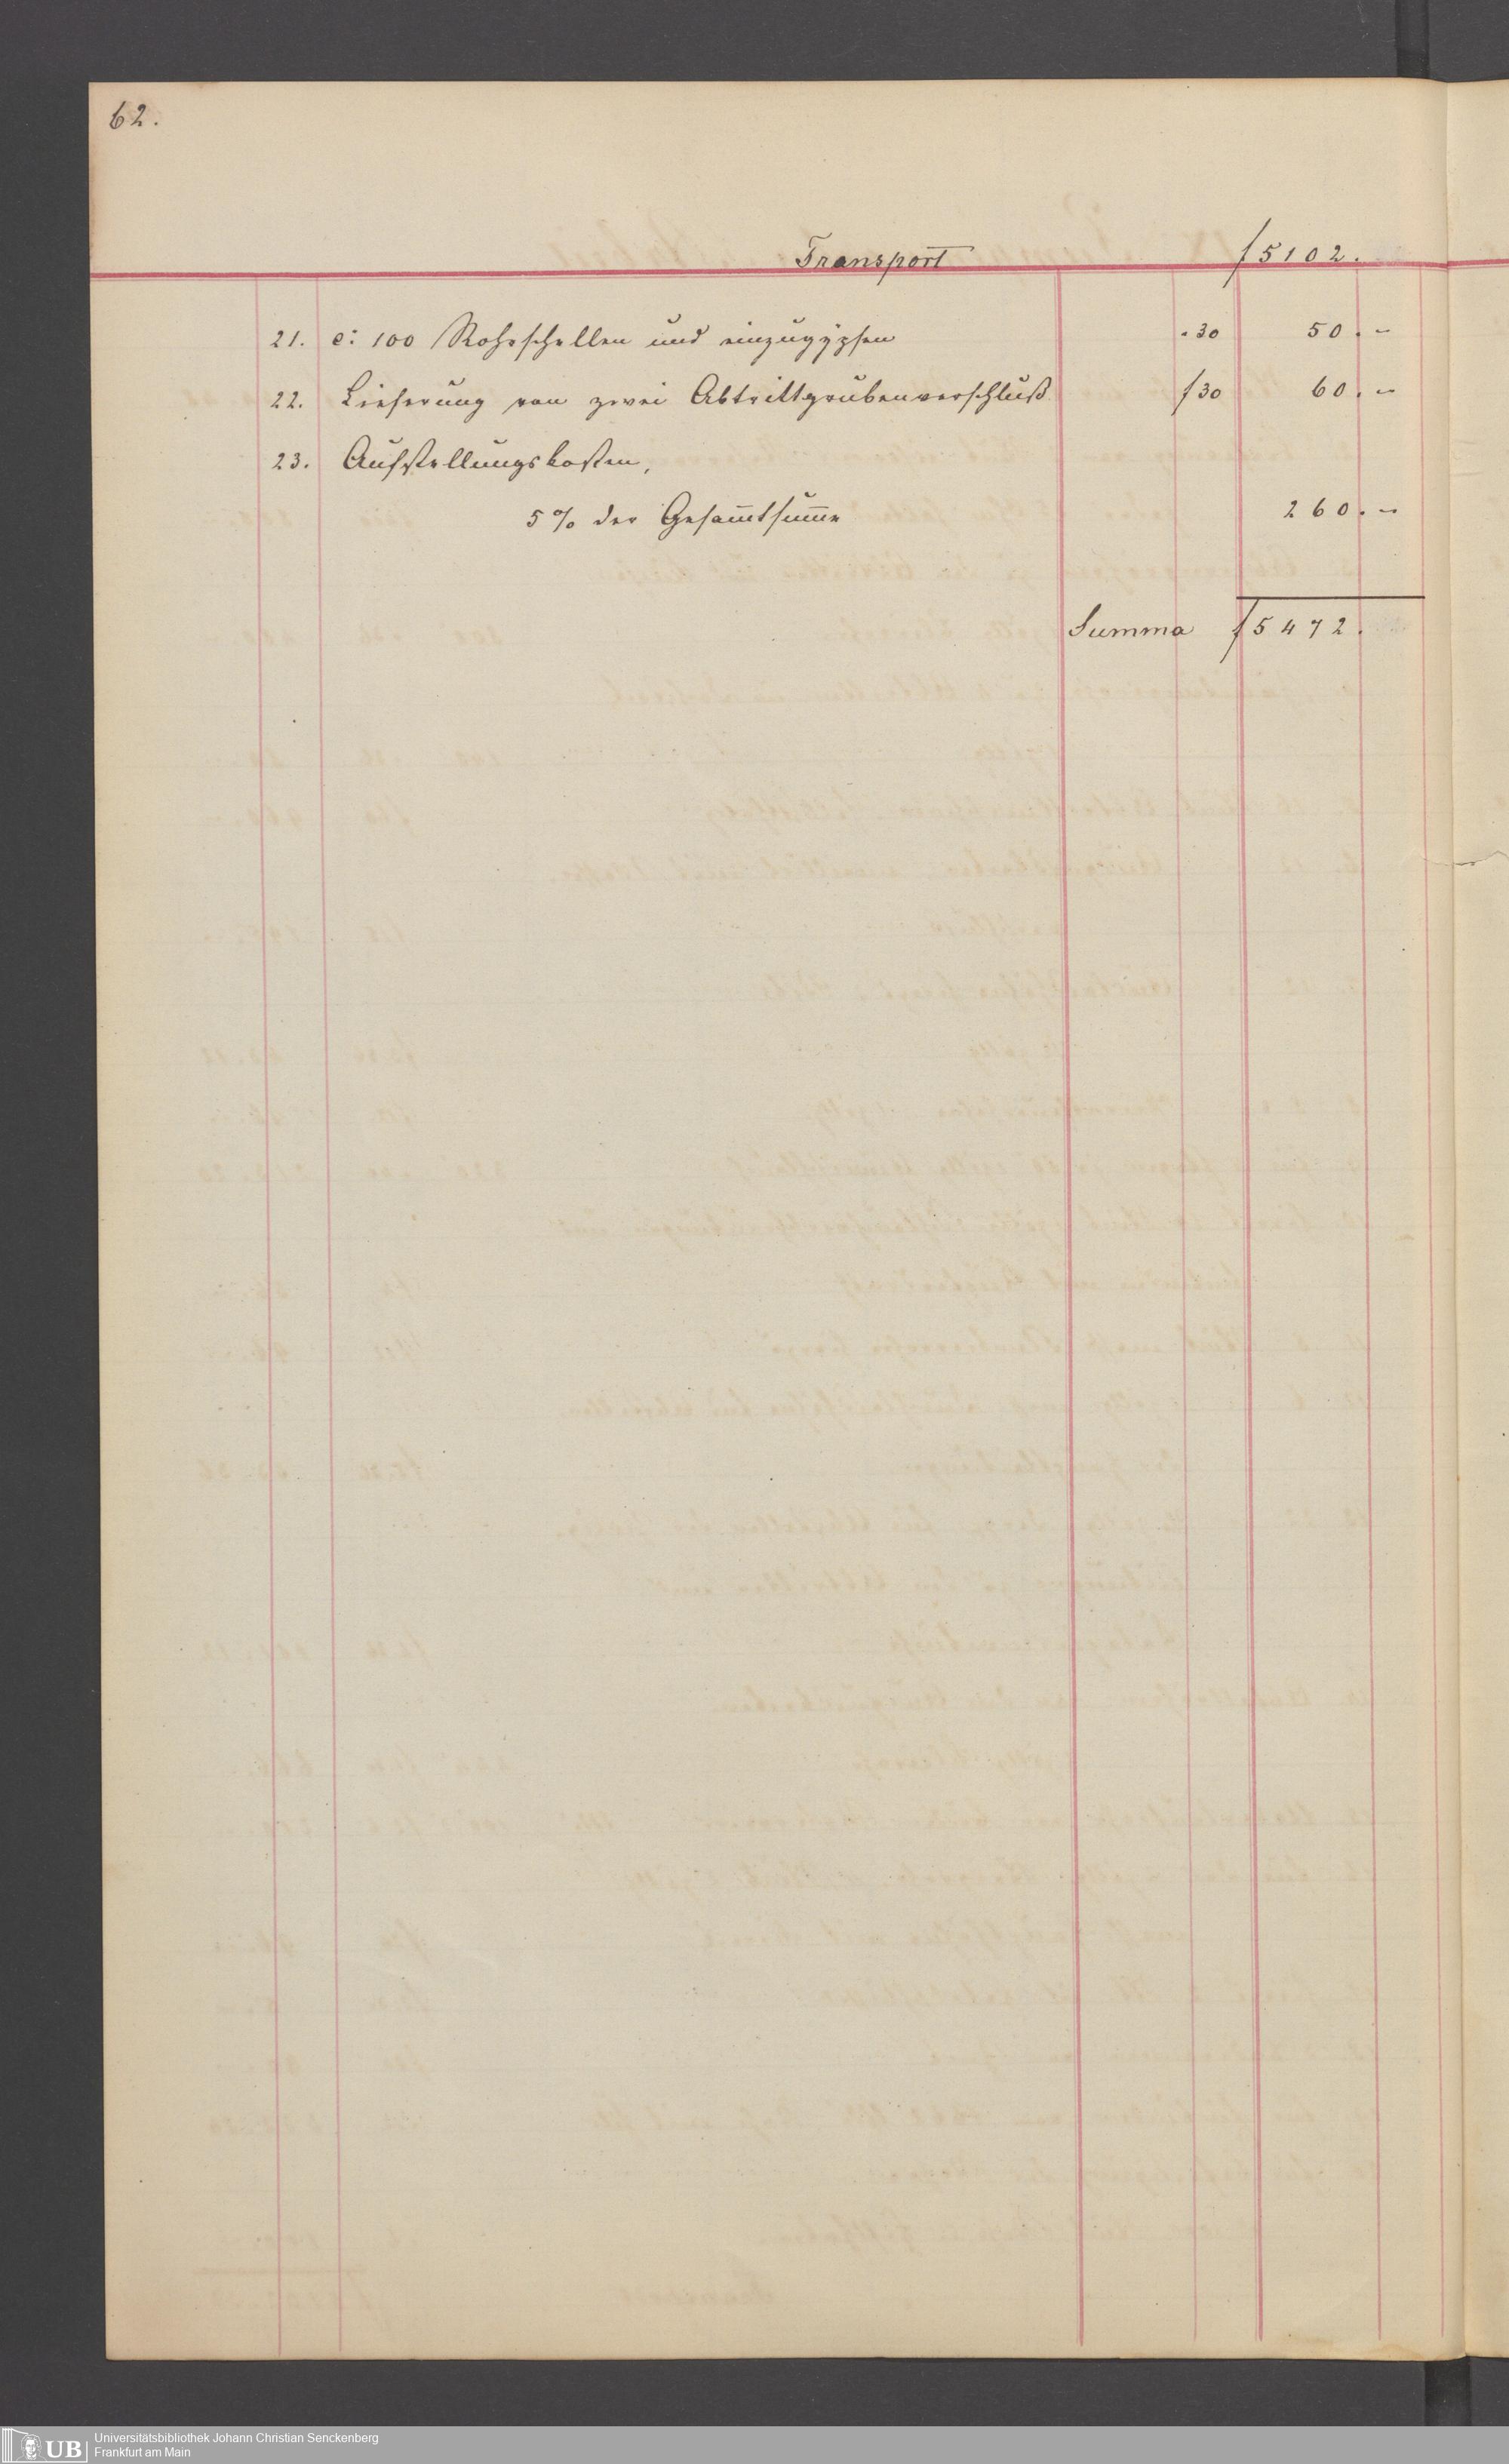 62.
Transport f 5102.
21. c: 100 Rohrschellen und einzugÿpsen . 30 50. –
22. Lieferung von zwei Abtrittgrubenverschluß f 30 60. –
23. Aufstellungskosten,
5 % der Gesam̅tsum̅e 260. –
Summa f 5472.
UB
Universitätsbibliothek Johann Christian Senckenberg
Frankfurt am Main